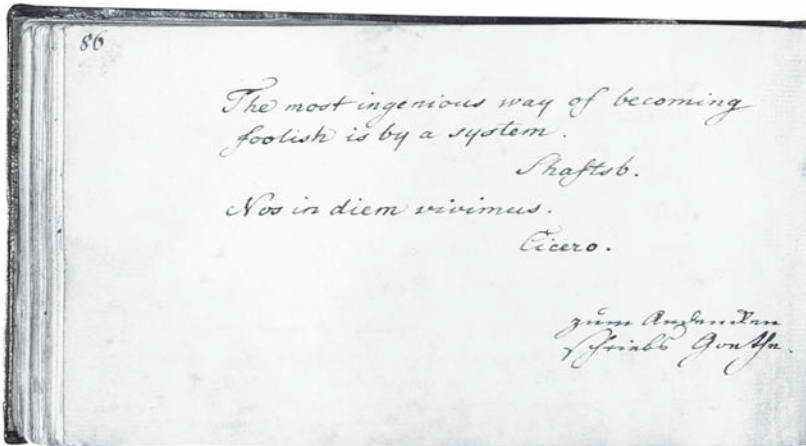 86
The most ingenious way of becoming
foolish is by a system.
Shaftsb.
Nos in diem vivimus.
Cicero.
zum Andencken
schriebs Goethe.